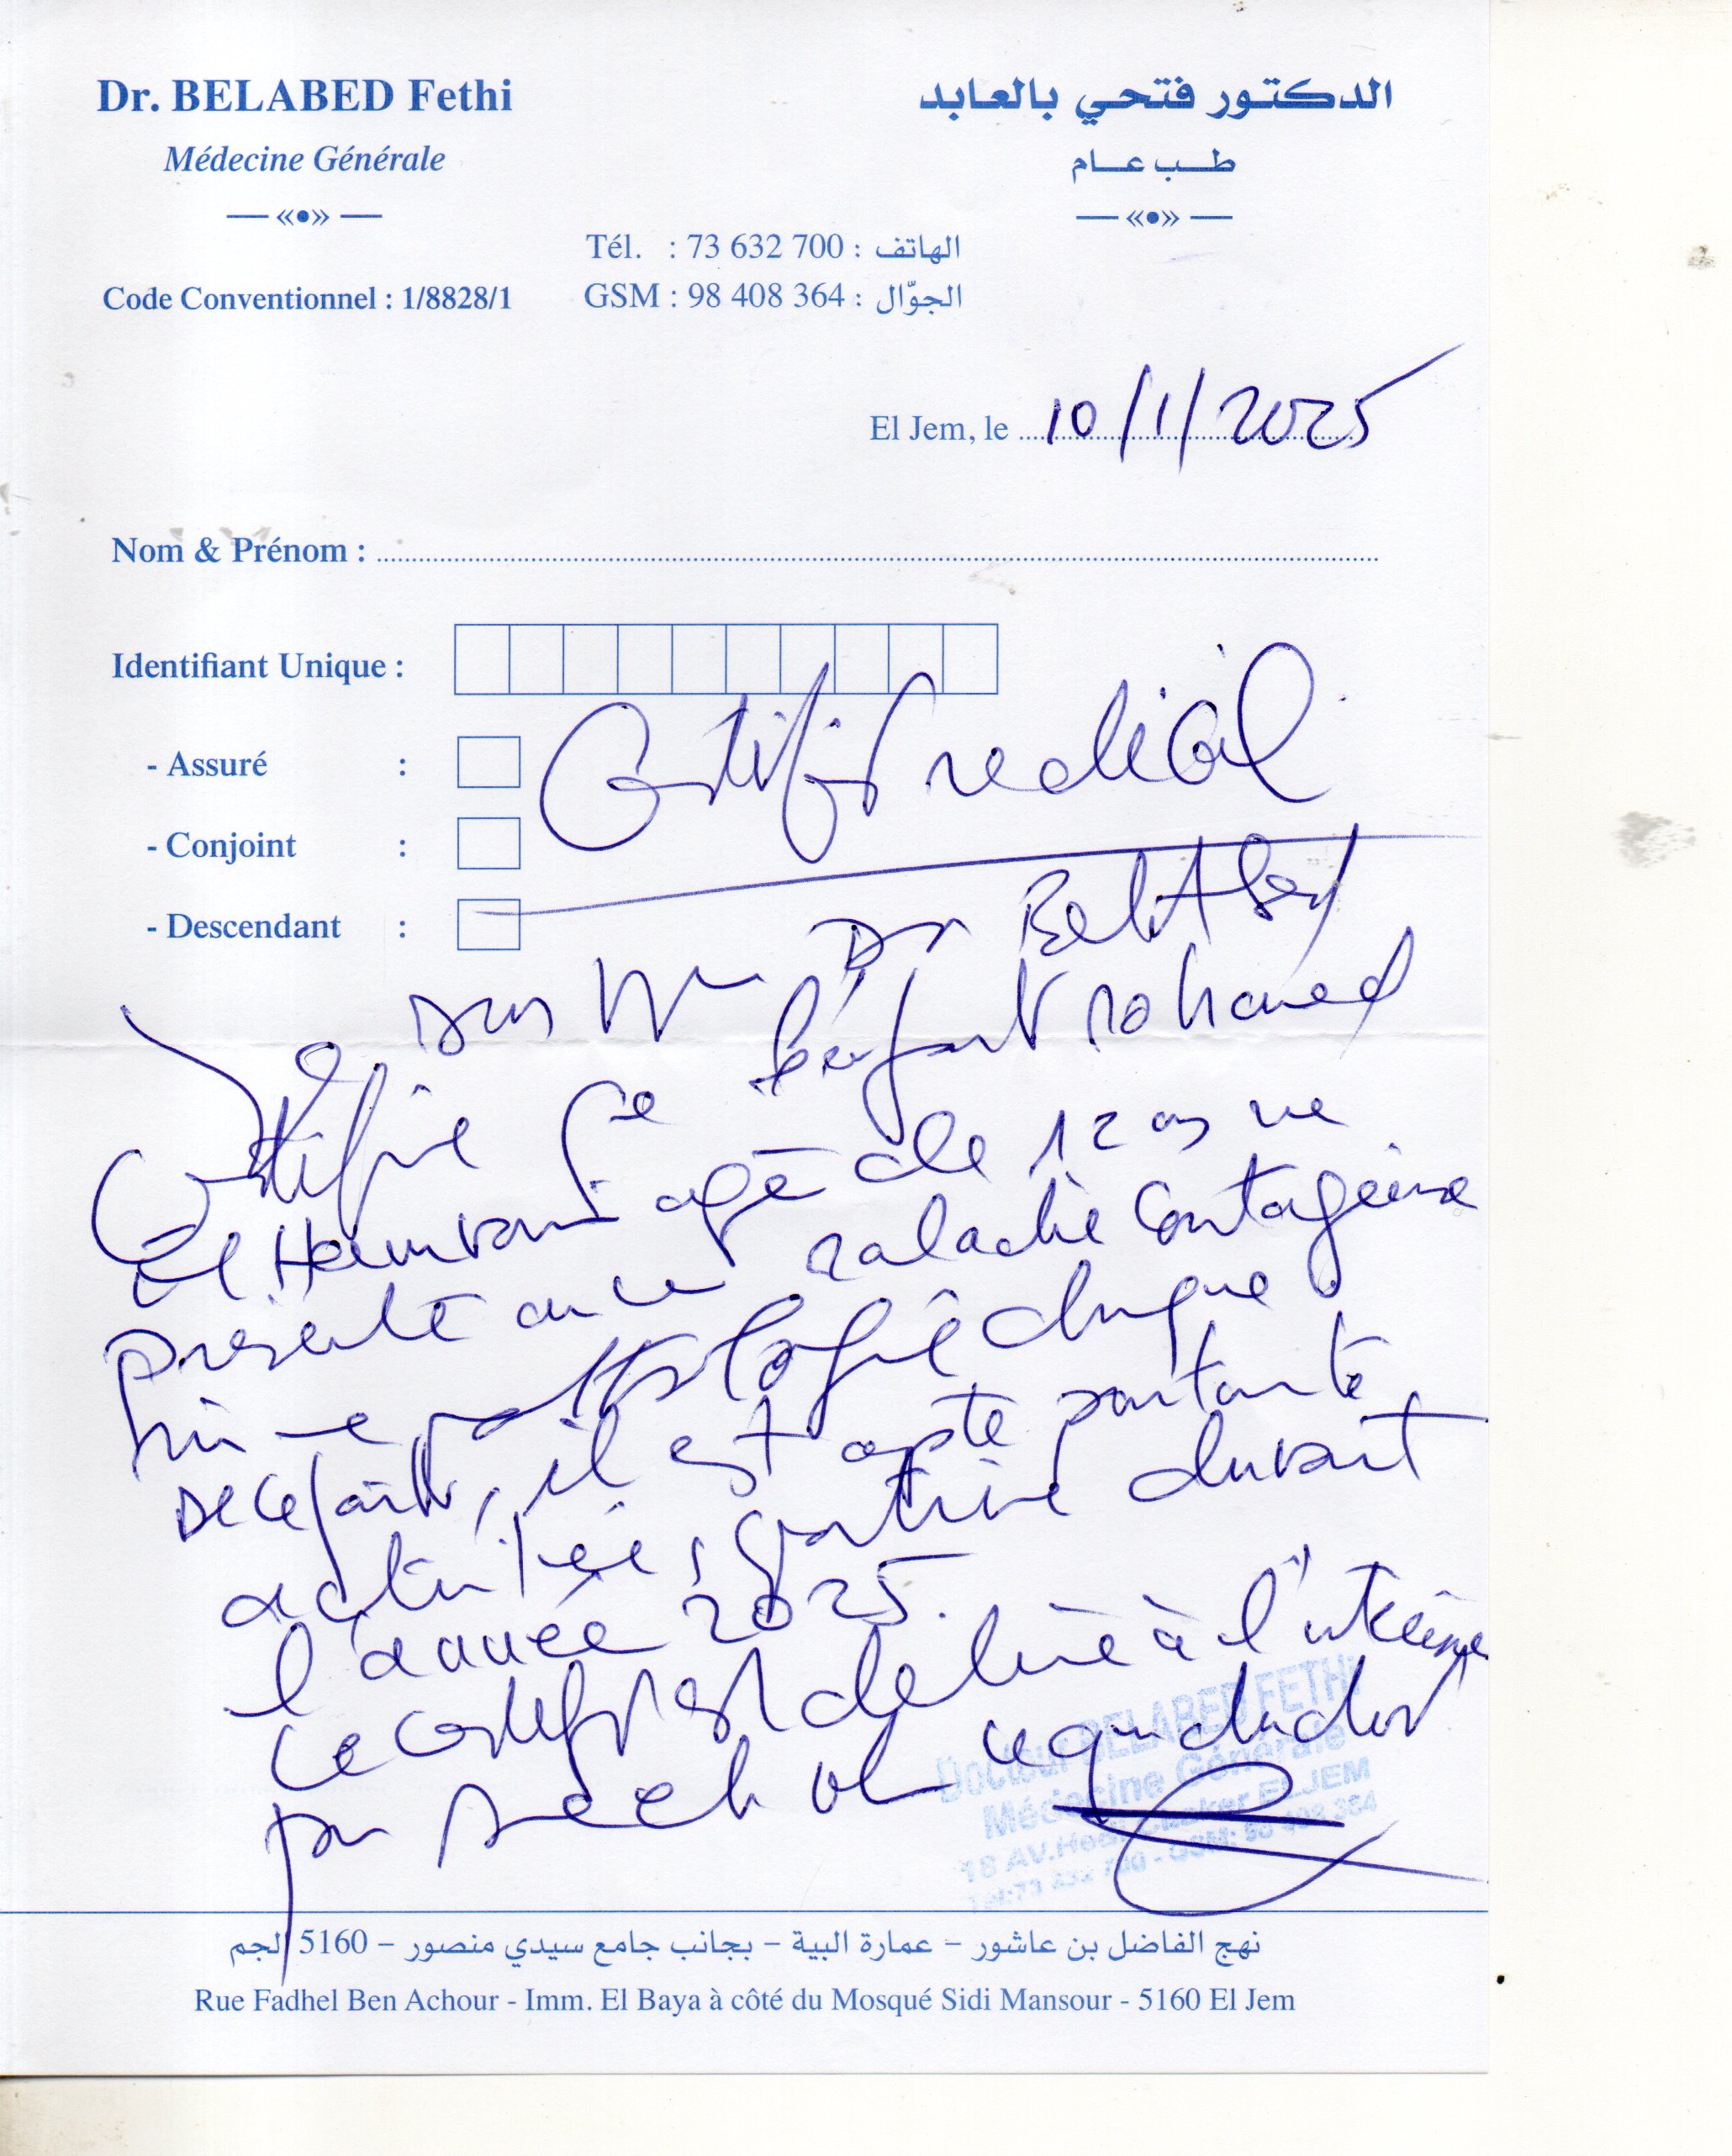 Dr. BELABED Fethi
Médecine Générale
الدكتور فتحي بالعابد
طب عام
Code Conventionnel : 1/8828/1
Tél. : 73 632 700 : الهاتف
GSM : 98 408 364 : الجوّال
El Jem, le 10/1/2025
Nom & Prénom :
Identifiant Unique :
- Assuré :
- Conjoint :
- Descendant :
Certificat medical
Dr BelAbed
Certifie que l'enfant Mohamed
El Hamrouni agé de 12 ans ne
présente aucune maladie contagieuse
ni une pathologie chronique
decelable, il est apte
activité durant
l'année 2025.
Ce certificat est delivré à l'intéressé
pour
Docteur BELABED FETHI
Médecine Générale
18 AV.Hedi Chaker EL JEM
Tél:73 632 700 - GSM: 98 408 364
نهج الفاضل بن عاشور – عمارة البية – بجانب جامع سيدي منصور – 5160 الجم
Rue Fadhel Ben Achour - Imm. El Baya à côté du Mosqué Sidi Mansour - 5160 El Jem